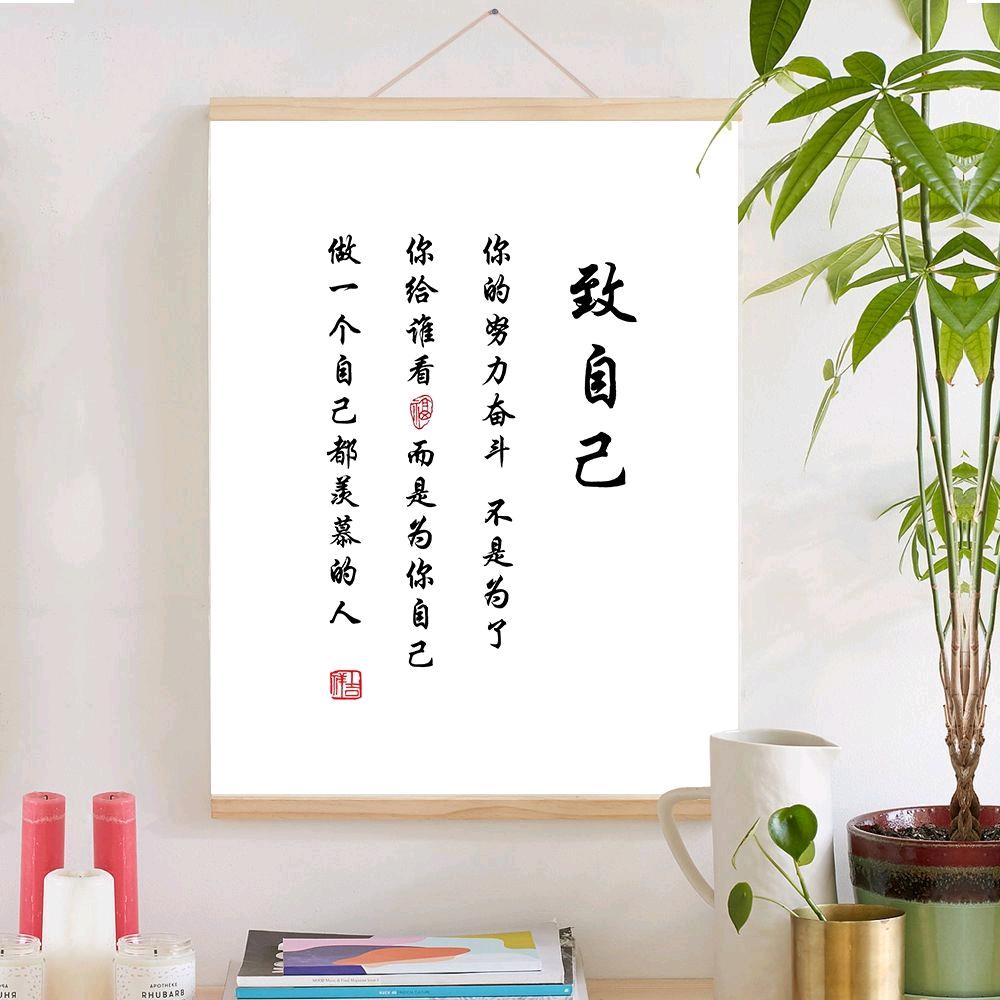 致自己
你的努力奋斗 不是为了
你给谁看 福 而是为你自己
做一个自己都羡慕的人
吉祥
APOTHEKE
RHUBARB